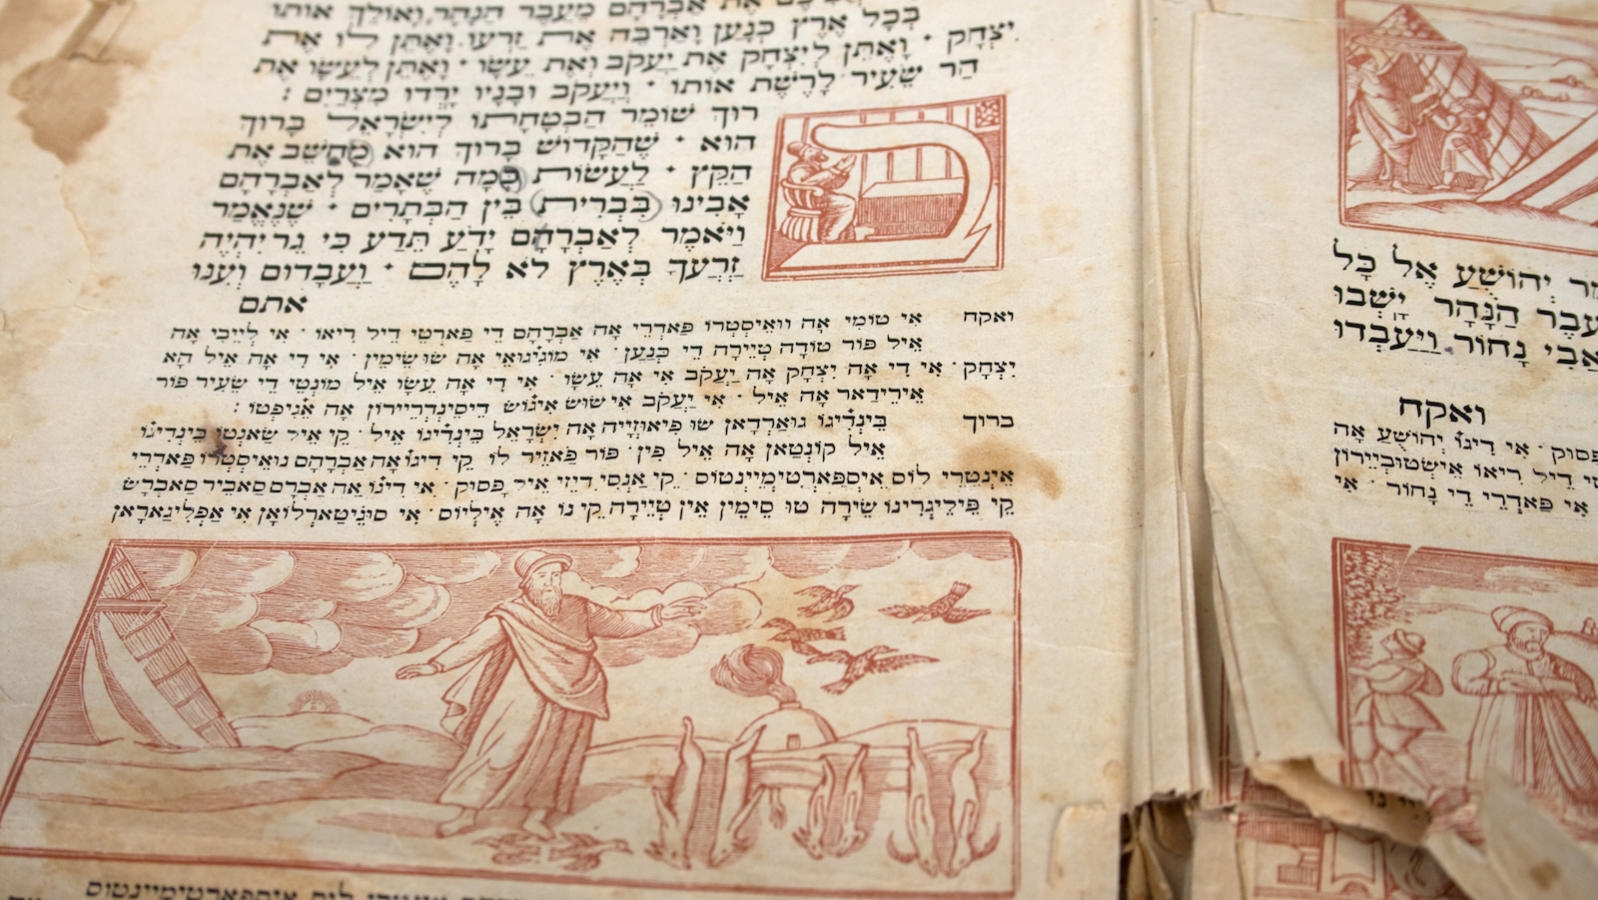 את אברהם מעבר הנהר ואולך אותו
בְּכָל אֶרֶץ כְּנַעַן וָאַרְבֶּה אֶת זַרְעוֹ וָאֶתֵּן לוֹ אֶת
יִצְחָק · וָאֶתֵּן לְיִצְחָק אֶת יַעֲקֹב וְאֶת עֵשָׂו · וָאֶתֵּן לְעֵשָׂו אֶת
הַר שֵׂעִיר לָרֶשֶׁת אוֹתוֹ · וְיַעֲקֹב וּבָנָיו יָרְדוּ מִצְרַיִם :
בָּרוּךְ שׁוֹמֵר הַבְטָחָתוֹ לְיִשְׂרָאֵל בָּרוּךְ
הוּא · שֶׁהַקָּדוֹשׁ בָּרוּךְ הוּא מְחַשֵּׁב אֶת
הַקֵּץ · לַעֲשׂוֹת כְּמָה שֶׁאָמַר לְאַבְרָהָם
אָבִינוּ (בִּבְרִית) בֵּין הַבְּתָרִים · שֶׁנֶּאֱמַר
וַיֹּאמֶר לְאַבְרָהָם יָדֹעַ תֵּדַע כִּי גֵר יִהְיֶה
זַרְעֲךָ בְּאֶרֶץ לֹא לָהֶם · וַעֲבָדוּם וְעִנּוּ
אתם
ואקח אִי טוֹמִי אָה וואֵיסְטְרוֹ פַּאדְרֵי אָה אַבְרָהָם דֵי פַּארְטֵי דֵיל רִיאוֹ · אִי לְייֵבִי אָה
אֵיל פּוֹר טוֹדָה טְיֵירָה דֵי כְּנַעַן · אִי מוּגִ'יגוּאֵי אָה שׁוּ שֵׂימֵין · אִי דִי אָה אֵיל הָא
יִצְחָק · אִי דִי אָה יִצְחָק אָה יַעֲקֹב אִי אָה עֵשָׂו · אִי דִי אָה עֵשָׂו אֵיל מוֹנְטֵי דֵי שֵׂעִיר פּוֹר
אֵירֵידַאר אָה אֵיל · אִי יַעֲקֹב אִי שׁוּשׁ אִיגוֹשׁ דֵיסֵינְדְרְיֵירוֹן אָה אַגִ'יפְּטוֹ :
ברוך בֵּינְדִיגוֹ גוּאַרְדָאן שׁוּ פִּיאוּזְייָה אָה יִשְׂרָאֵל בֵּינְדִיגוֹ אֵיל · קֵי אֵיל שַׂאנְטוֹ בֵּינְדִיגוֹ
אֵיל קוֹנְטַאן אָה אֵיל פִין · פּוֹר פַאזֵיר לוֹ קֵי דִיגוֹ אָה אַבְרָהָם נוּאֵיסְטְרוֹ פַּאדְרֵי
אֵינְטְרֵי לוֹס אֵיסְפַּארְטִימְיֵינְטוֹס · קֵי אַנְסִי דִיזֵי אֵיל פָּסוּק · אִי דִיגוֹ אָה אַבְרָם סַאבֵּיר סַאבְּרָשׁ
קֵי פֵּילֵיגְרִינוֹ שֵׂירָה טוּ סֵימֵין אֵין טְיֵירָה קֵי נוֹ אָה אֵילְיוֹס · אִי סוּגֵ'יטַארְלוֹאָן אִי אַפְלִיגַארָאן
יְהוֹשֻׁעַ אֶל כָּל
בְּעֵבֶר הַנָּהָר יָשְׁבוּ
אֲבִי נָחוֹר וַיַּעַבְדוּ
ואקח
פסוק · אִי דִיגוֹ יְהוֹשֻׁעַ אָה
דֵיל רִיאוֹ אֵישְׁטוּבְיֵירוֹן
אִי פַּאדְרֵי דֵי נָחוֹר · אִי